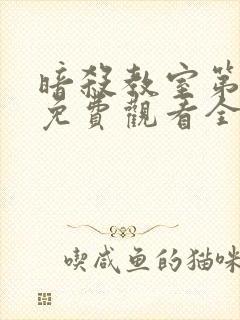 暗殺教室第
免費觀看全
喫咸鱼的猫咪